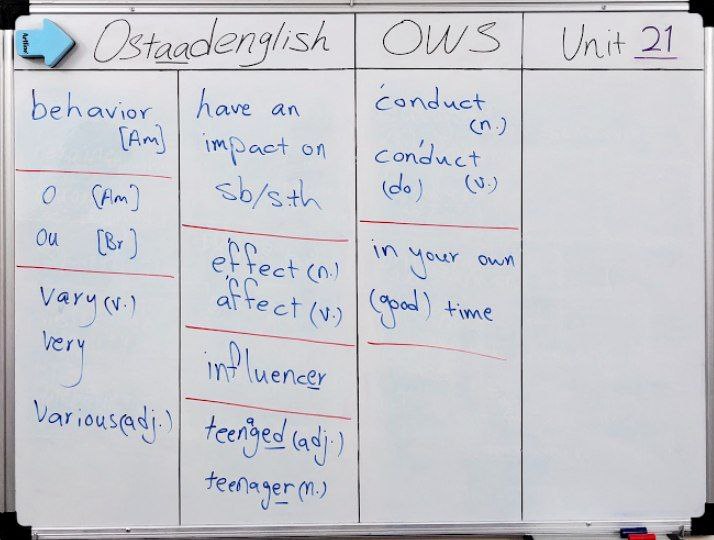 Ostaadenglish
OWS
Unit 21
behavior
[Am]
o [Am]
ou [Br]
vary (v.)
very
various (adj.)
have an
impact on
sb/sth
effect (n.)
affect (v.)
influencer
teenaged (adj.)
teenager (n.)
conduct
(n.)
conduct
(do) (v.)
in your own
(good) time